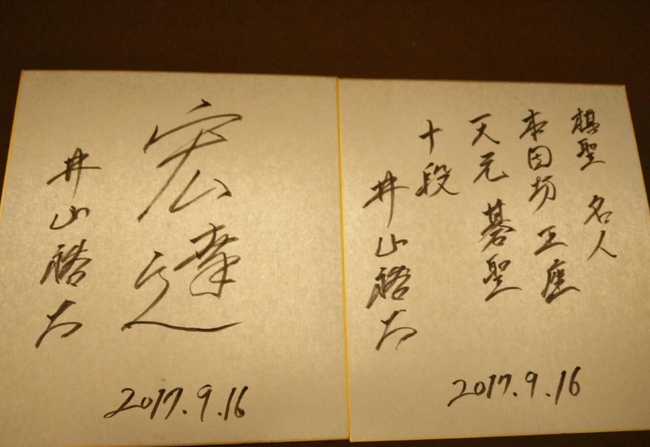 宏達
井山裕太
2017.9.16
棋聖 名人
本因坊 王座
天元 碁聖
十段
井山裕太
2017.9.16